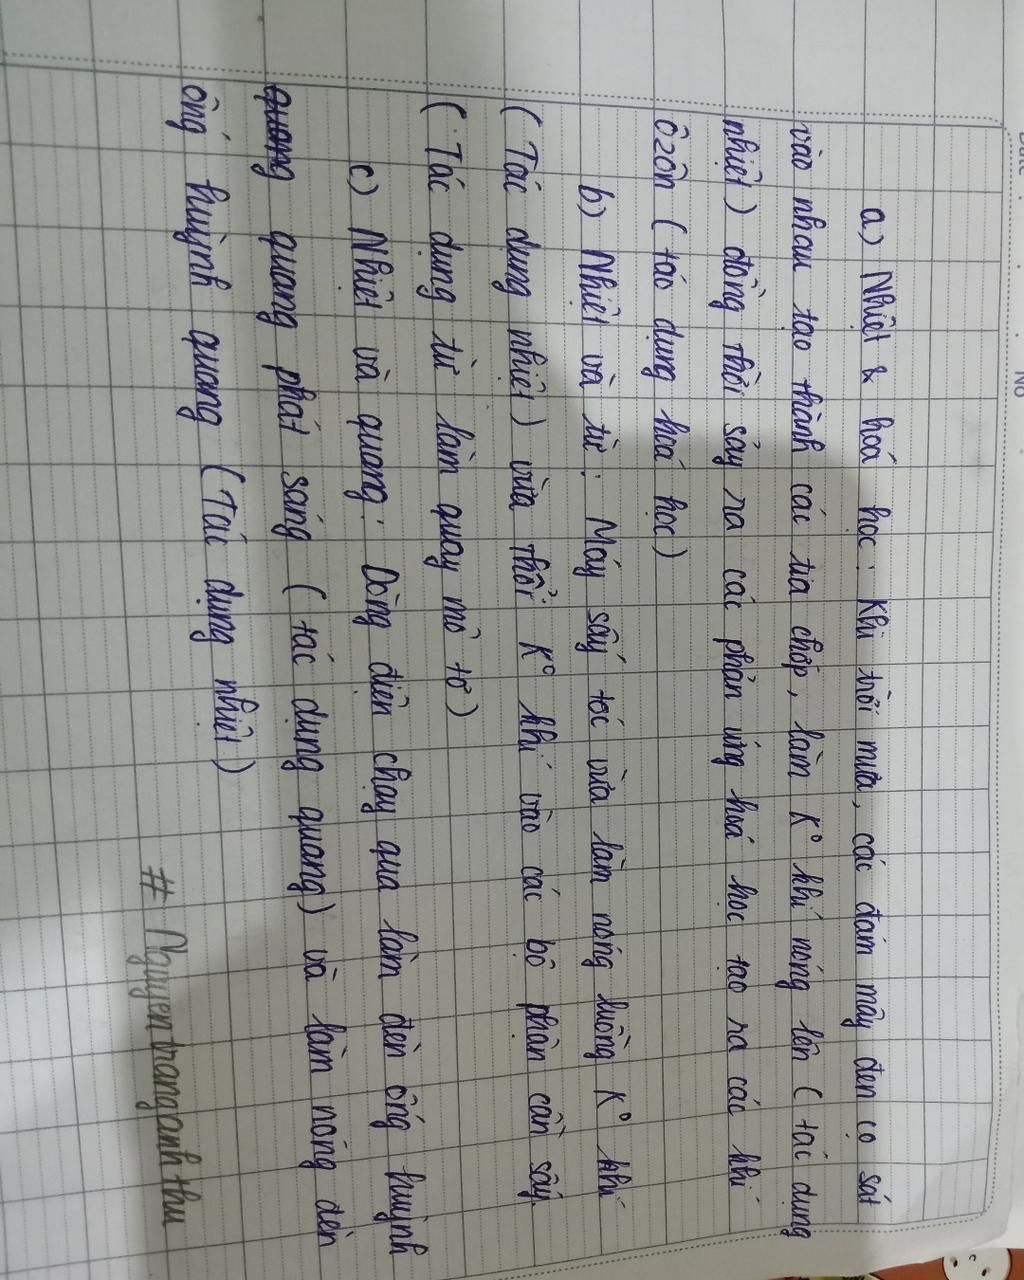 Date :
No
a) Nhiệt & hoá học : Khi trời mưa, các đám mây đen cọ sát
vào nhau tạo thành các tia chớp, làm K° khí nóng lên ( tác dụng
nhiệt) đồng thời sảy ra các phản ứng hoá học tạo ra các khí
ôzôn ( tác dụng hoá học)
b) Nhiệt và từ : Máy sấy tóc vừa làm nóng luồng K° khí
( Tác dụng nhiệt) vừa thổi K° khí vào các bộ phận cần sấy.
( Tác dụng từ làm quay mô tơ )
c) Nhiệt và quang : Dòng điện chạy qua làm đèn ống huỳnh
quang quang phát sáng ( tác dụng quang) và làm nóng đèn
ống huỳnh quang (Tác dụng nhiệt)
# Nguyentranganhthu